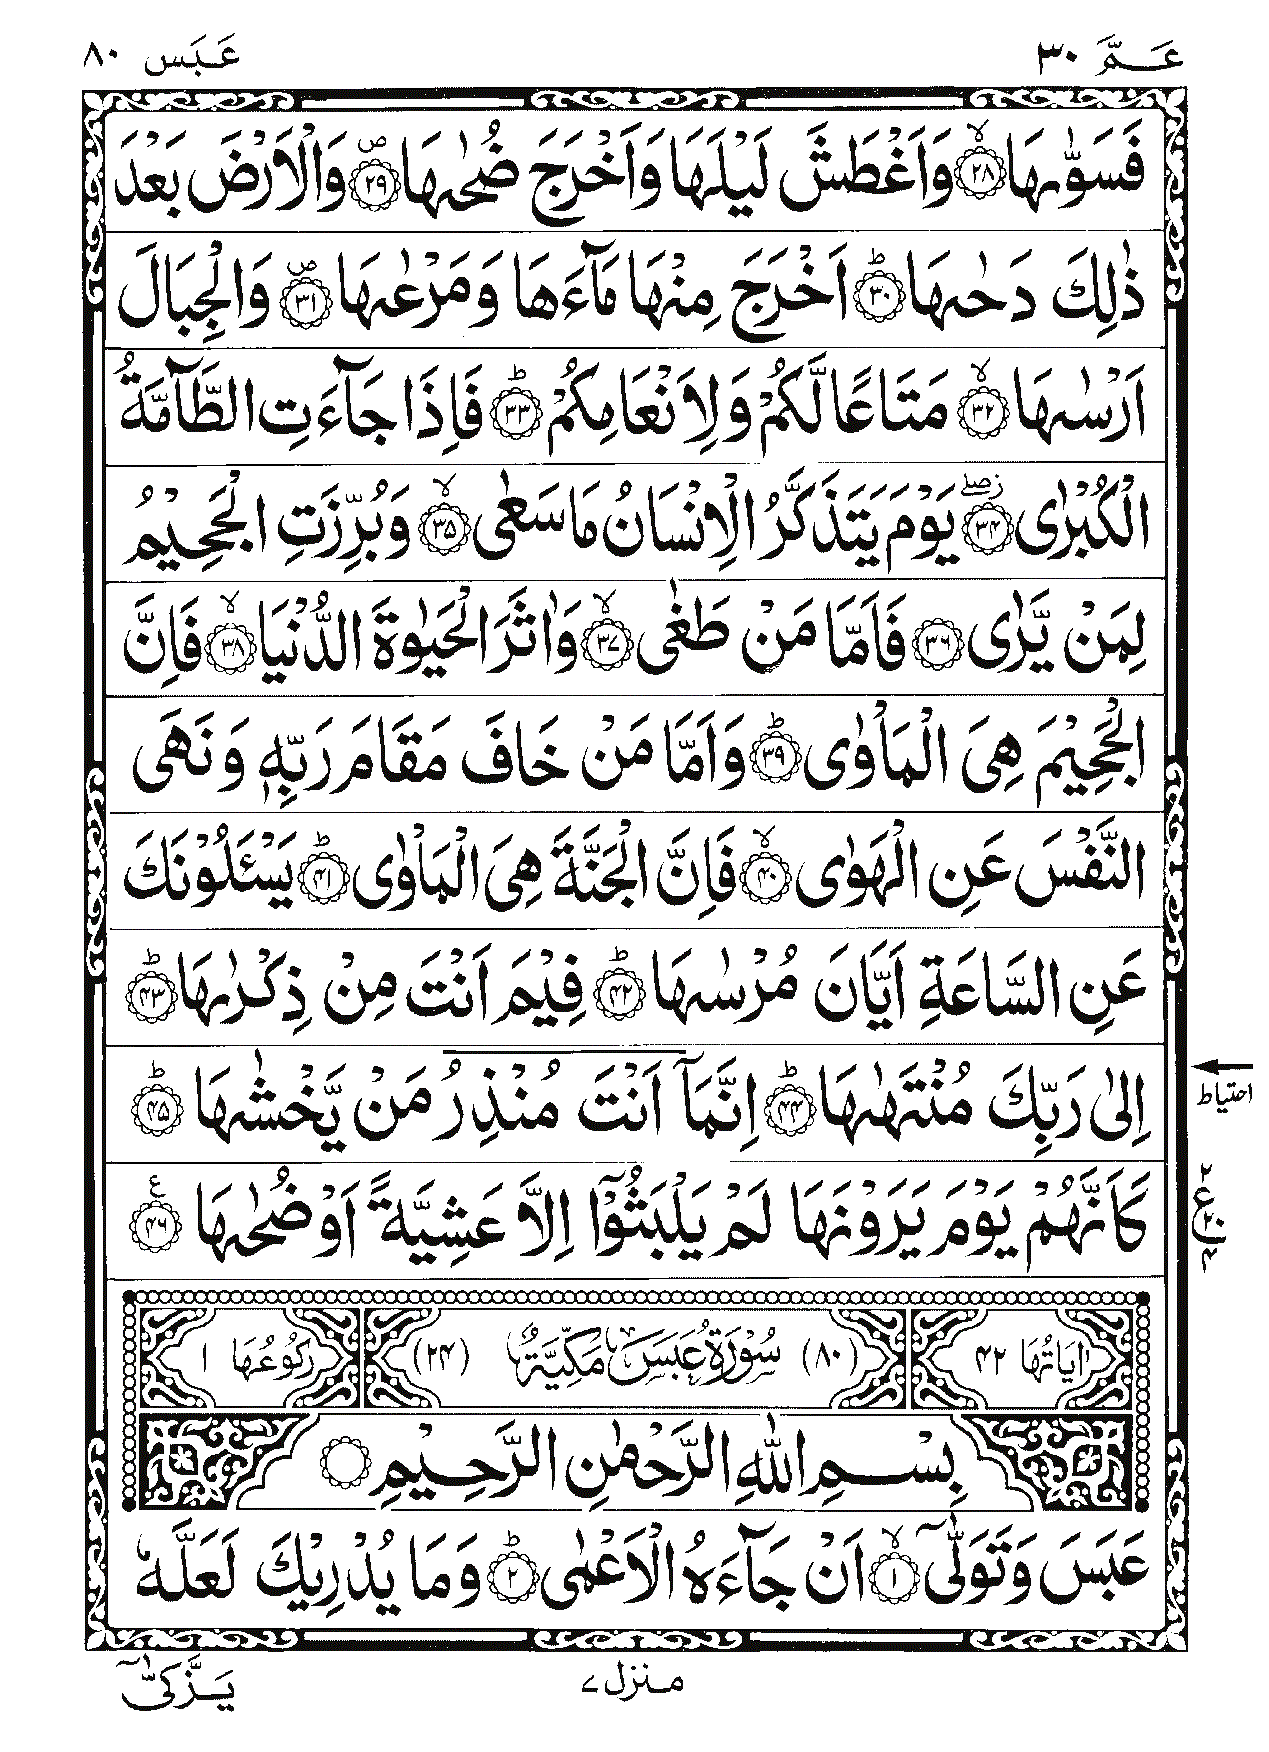 عَمَّ ٣٠ عَبَسَ ٨٠
فَسَوّٰىهَا ۙ﴿۲۸﴾ وَاَغْطَشَ لَيْلَهَا وَاَخْرَجَ ضُحٰىهَا ۪﴿۲۹﴾ وَالْاَرْضَ بَعْدَ
ذٰلِكَ دَحٰىهَا ؕ﴿۳۰﴾ اَخْرَجَ مِنْهَا مَآءَهَا وَمَرْعٰىهَا ۪﴿۳۱﴾ وَالْجِبَالَ
اَرْسٰىهَا ۙ﴿۳۲﴾ مَتَاعًا لَّكُمْ وَلِاَنْعَامِكُمْ ؕ﴿۳۳﴾ فَاِذَا جَآءَتِ الطَّآمَّةُ
الْكُبْرٰى ۖ﴿۳۴﴾ يَوْمَ يَتَذَكَّرُ الْاِنْسَانُ مَا سَعٰى ۙ﴿۳۵﴾ وَبُرِّزَتِ الْجَحِيْمُ
لِمَنْ يَّرٰى ﴿۳۶﴾ فَاَمَّا مَنْ طَغٰى ۙ﴿۳۷﴾ وَاٰثَرَ الْحَيٰوةَ الدُّنْيَا ۙ﴿۳۸﴾ فَاِنَّ
الْجَحِيْمَ هِيَ الْمَاْوٰى ؕ﴿۳۹﴾ وَاَمَّا مَنْ خَافَ مَقَامَ رَبِّهٖ وَنَهَى
النَّفْسَ عَنِ الْهَوٰى ۙ﴿۴۰﴾ فَاِنَّ الْجَنَّةَ هِيَ الْمَاْوٰى ؕ﴿۴۱﴾ يَسْـَٔلُوْنَكَ
عَنِ السَّاعَةِ اَيَّانَ مُرْسٰىهَا ؕ﴿۴۲﴾ فِيْمَ اَنْتَ مِنْ ذِكْرٰىهَا ؕ﴿۴۳﴾
اِلٰى رَبِّكَ مُنْتَهٰىهَا ؕ﴿۴۴﴾ اِنَّمَآ اَنْتَ مُنْذِرُ مَنْ يَّخْشٰىهَا ؕ﴿۴۵﴾
احتیاط
كَاَنَّهُمْ يَوْمَ يَرَوْنَهَا لَمْ يَلْبَثُوْٓا اِلَّا عَشِيَّةً اَوْ ضُحٰىهَا ﴿۴۶﴾ ع
۲ ع ۲۰ ۴
اٰيَاتُهَا ۴۲ (۸۰) سُوْرَةُ عَبَسَ مَكِّيَّةٌ (۲۴) رُكُوْعُهَا ۱
بِسْمِ اللّٰهِ الرَّحْمٰنِ الرَّحِيْمِ
عَبَسَ وَتَوَلّٰىٓ ۙ﴿۱﴾ اَنْ جَآءَهُ الْاَعْمٰى ؕ﴿۲﴾ وَمَا يُدْرِيْكَ لَعَلَّهٗ
منزل ۷
يَزَّكّٰىٓ